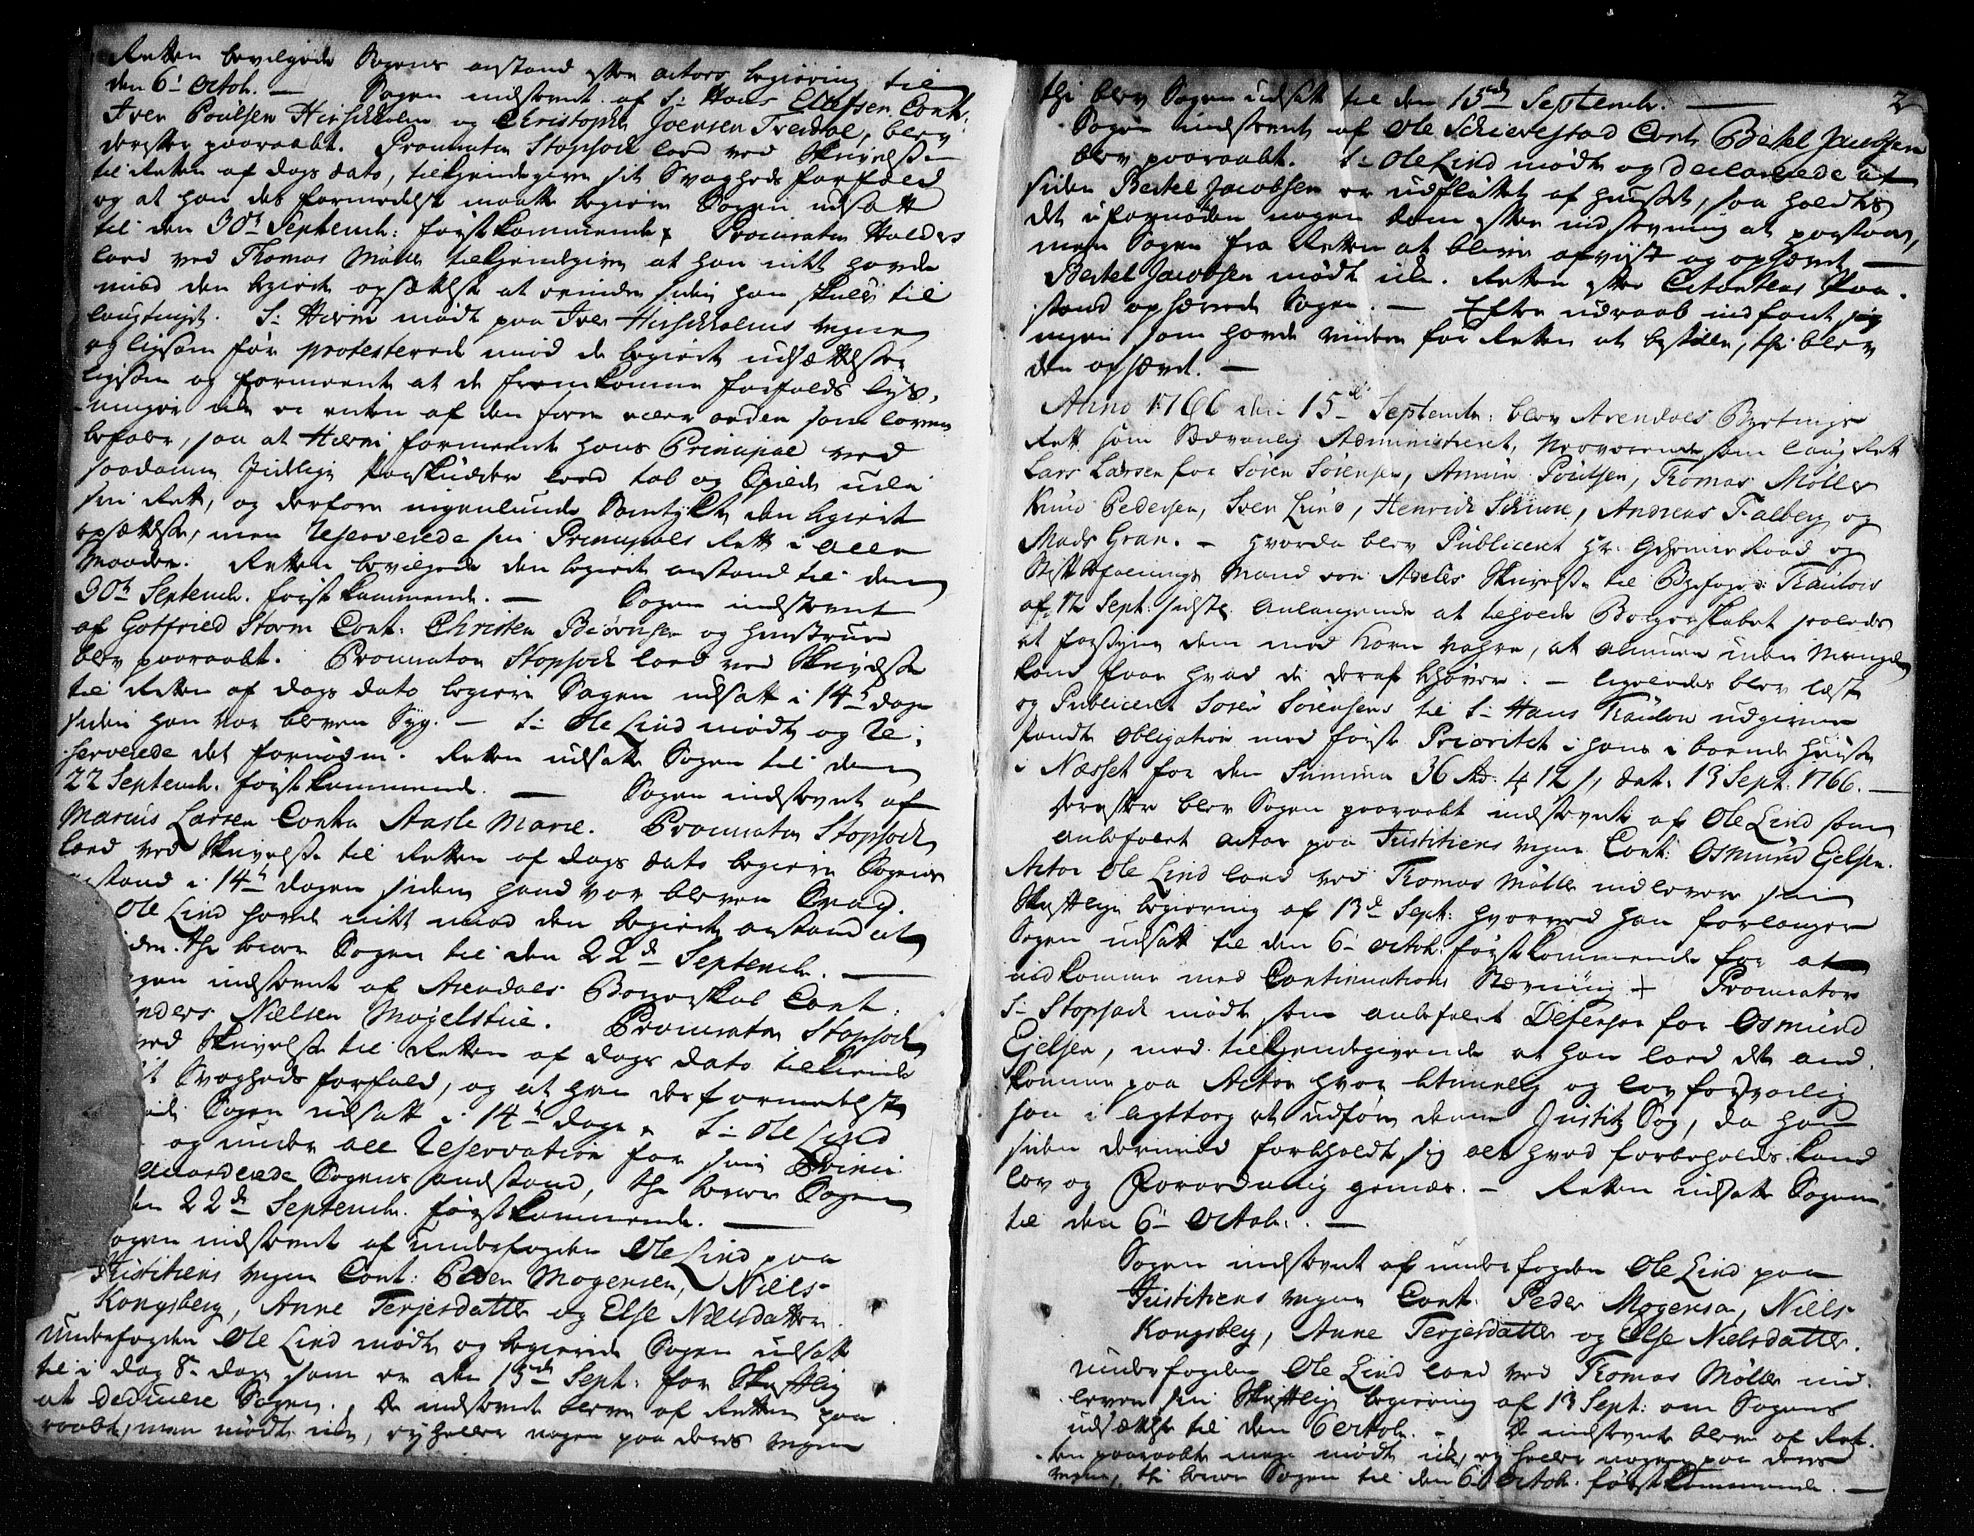 Retten bevilgede Sagens anstand efter actors begiering til
den 6te octobr. — Sagen indstevnt af Sr Hans Olufsen Contr:
Iver Poulsen Hirschholm og Christopher Joensen Tredal, blev
derefter paaraabt. Procurator Stopsack loed ved Skrivelse
til Retten af dags dato, tilkiendegive sit Svagheds forfald
og at han des formedelst maatte begiere Sagen udsatt
til den 30te Septembr: førstkommende. Procurator Halder
loed ved Thomas Møller tilkiendegive at han intet havde
imod den begierte opsættelse at erindre siden han skulle til
laugtinget. Sr Hierm mødte paa Iver Hirschholms vegne
og ligesom før protesterede imod de begierte udsættelser
ligesom og formeente at de fremkomne forfalds lys-
ninger ikke er enten af den form eller orden som loven
befaler, saa at Hierm formeente hans Principal ved
saadanne Idelige forskudder leed tab og Spilde udi
sin Rett, og derfore ingenlunde Samtykte den begierte
opsættelse, men Reserverede sin Principals Rett i alle
Maader. Retten bevilgede den begierte anstand til den
30te Septembr. førstkommende. — Sagen indstevnt
af Gotfried Storm Cont: Christen Biørnsen og hustrue
blev paaraabt. Procurator Stopsack loed ved Skrivelse
til Retten af dags dato begiere Sagen udsatt i 14ten dage
siden han var bleven Syg. — Sr Ole Lind mødte og Re-
serverede det fornødne. Retten udsatte Sagen til den
22 Septembr. førstkommende. — Sagen indstevnt af
Marius Larsen Contra Aasle Marie. Procurator Stopsack
loed ved Skrivelse til Retten af dags dato begiere Sagens
anstand i 14ten dagen siden hand var bleven Svag.
Ole Lind havde intet imod den begierte anstand at
thi beroer Sagen til den 22de Septembr. —
indstevnt af Arendals Borgerskab Cont:
Nielsen Mogelstue. Procurator Stopsack
ved Skrivelse til Retten af dags dato tilkiende
Svagheds forfald, og at han derformedelst
Sagen udsatt i 14ten dage. Sr Ole Lind
og under all Reservation for sin Princi
Sagens andstand, thi beroer Sagen
22de Septembr. førstkommende. —
indstevnt af underfogden Ole Lind paa
Justitiens vegne Cont: Peder Mogensen, Niels
Kongsberg, Anne Terjesdatter og Else Nielsdatter.
Underfogden Ole Lind mødte og begierede Sagen udsatt
til i dag 8te dage som er den 15de Sept: for Skriftlig
at deducere Sagen. De indstevnte bleve af Retten paa
raabt, men mødte icke, ey heller nogen paa deres vegne
2
thi blev Sagen udsatt til den 15de Septembr. —
Sagen indstevnt af Ole Schierestad Contr Bertel Jacobsen
blev paaraabt. Sr Ole Lind mødte og declarerede at
siden Bertel Jacobsen er udfløttet af huuset, saa holdtes
det ufornøden nogen dom efter indstevning at paastaae,
men Sagen fra Retten at blive afviist og ophævet —
Bertel Jacobsen mødte icke. Retten efter Citantens Paa-
stand ophævede Sagen. — Efter udraab indfant sig
ingen som havde videre for Retten at bestille, thi blev
den ophævet. —
Anno 1766 den 15de Septembr: blev Arendals Byetings
Rett som Sædvanlig Administreret, Nerværende som Laug Rett
Lars Larsen for Søren Sørensen, Amun Poulsen, Thomas Møller
Knud Pedersen, Sven Lund, Henrich Schiøre, Andreas Falberg og
Mads Gran. — hvorda blev Publiceret Hr. Geheime Raad og
Stiftbefalings Mand von Adelers Skrivelse til Byefoged Traulow
af 12 Sept: sidste Anlangende at tilholde Borgerskabet saaledes
at forsyne dem med korn vahre, at almuen inden Mangel
kand faae hvad de deraf behøver. — ligeledes blev læst
og Publiceret Søren Sørensens til Sr Hans Traulow udgivne
Pandte obligation med første Prioritet i hans iboende huus
i Næsset for den Summa 36 Rd: 4 12 s, dat. 13 Sept: 1766. —
Derefter blev Sagen paaraabt indstevnt af Ole Lind som
anbefalet actor paa Justitiens vegne Cont: Osmund Ejelsen.
Actor Ole Lind loed ved Thomas Møller indlevere sin
Skriftlige begiering af 13de Sept: hvorved han forlanger
Sagen udsatt til den 6te octobr. førstkommende for at
indkomme med Continuations Stevning. Procurator
Sr Stopsack mødte som anbefalet Defensor for Osmund
Ejelsen, med tilkiendegivende at han loed det and
komme paa Actor hvor lemmelig og lov forsvarlig
han i agttog at udføre denne Justitz Sag, da han
siden dermed forbeholdt sig alt hvad forbeholdes kand
lov og Forordning gemæs. — Retten udsatte Sagen
til den 6te octobr. —
Sagen indstevnt af underfogden Ole Lind paa
Justitiens vegne Cont. Peder Mogensen, Niels
Kongsberg, Anne Terjesdatter og Else Nielsdatter.
Underfogden Ole Lind loed ved Thomas Møller ind-
levere sin Skriftlige begiering af 13 Sept: om Sagens
udsættelse til den 6 octobr. — De indstevnte bleve af Ret-
ten paaraabte men mødte icke, ey heller nogen paa deres
vegne, thi beroer Sagen til den 6te octobr. førstkommende. —